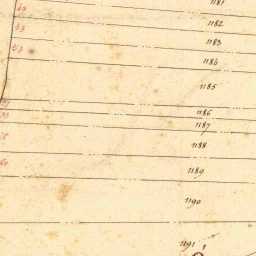 63
1181
63
1182
63
1183
1186
1185
1186
1187
1188
60
1189
1190
1191